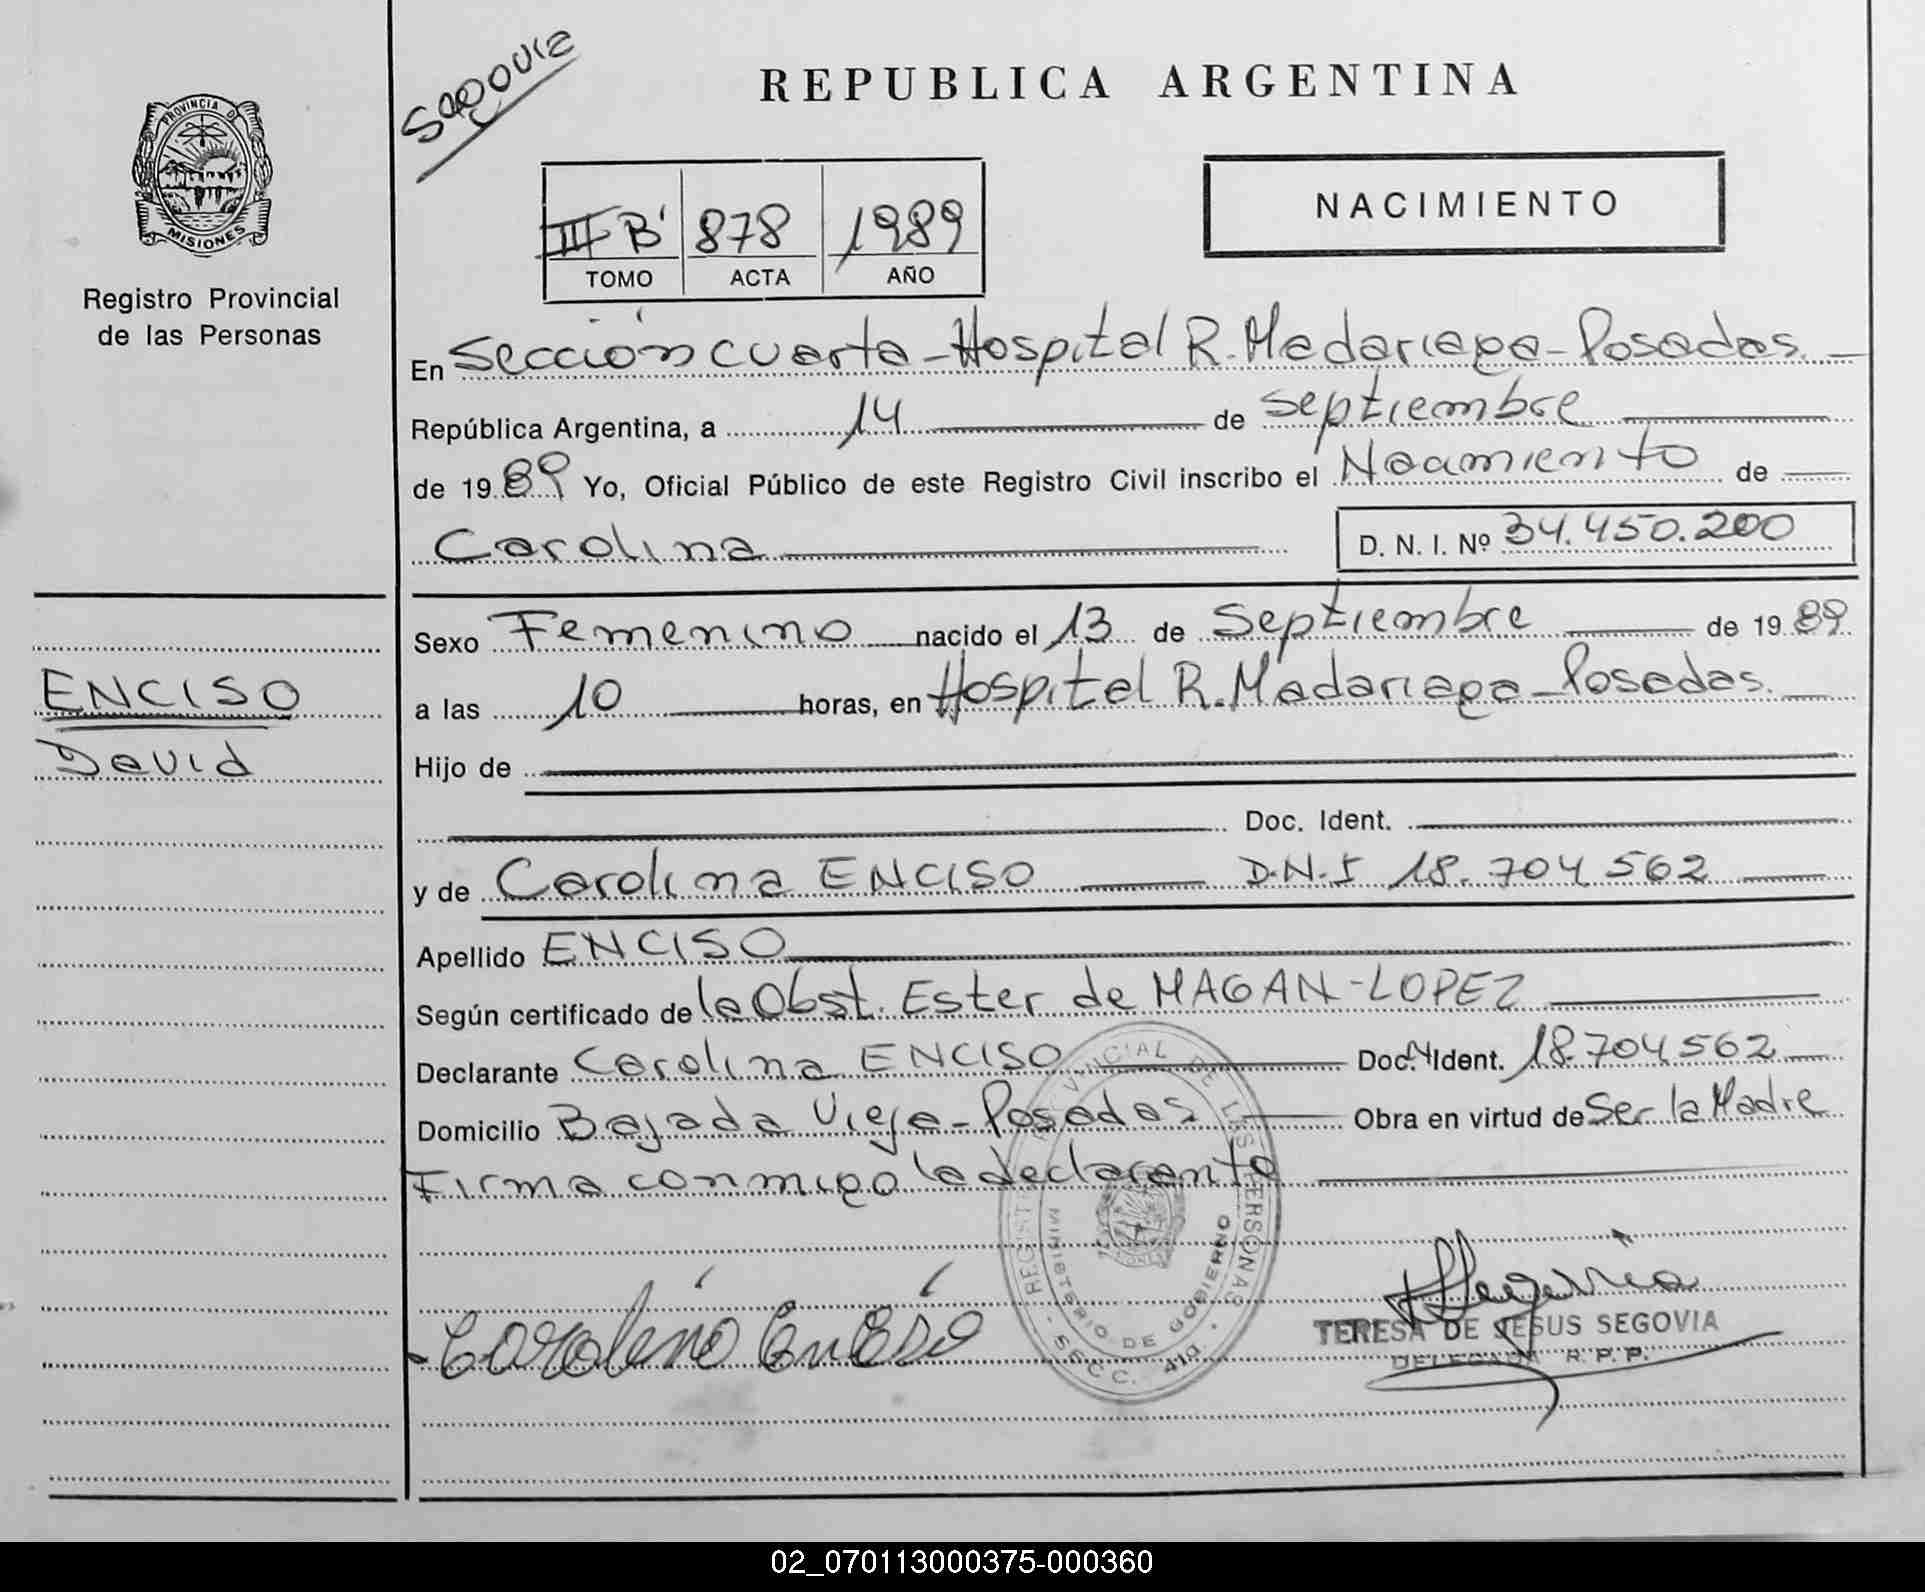 Segovia
REPUBLICA ARGENTINA
PROVINCIA DE
MISIONES
Registro Provincial
de las Personas
NACIMIENTO
III B' 878 1989
TOMO ACTA AÑO
En Sección cuarta - Hospital R. Madariaga - Posadas.
República Argentina, a 14 de septiembre
de 1989 Yo, Oficial Público de este Registro Civil inscribo el Nacimiento de
Carolina D. N. I. Nº 34.450.200
Sexo Femenino nacido el 13 de Septiembre de 1989
ENCISO
David
a las 10 horas, en Hospital R. Madariaga - Posadas.
Hijo de
Doc. Ident.
y de Carolina ENCISO D.N.I 18.704562
Apellido ENCISO
Según certificado de la Obst. Ester de MAGAN-LOPEZ
Declarante Carolina ENCISO Doc. Ident. 18.704562
Domicilio Bajada Vieja - Posadas Obra en virtud de Ser la Madre
Firma conmigo la declarante
REGISTRO PROVINCIAL DE LAS PERSONAS
MINISTERIO DE GOBIERNO
SECC. 4ta.
Carolina Enciso
TERESA DE JESUS SEGOVIA
DELEGADA R. P. P.
02_070113000375-000360